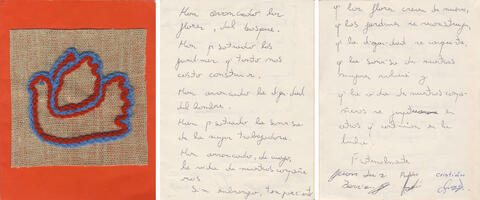 Han arrancado las
flores, del bosque.
Han pisoteado los
jardines y tanto nos
costo construir.
Han arrancado la dignidad
del hombre.
Han pisoteado la sonrisa
de la mujer trabajadora.
Han arrancado, de cuajo,
la vida de nuestros compañe
ros.
Sin embargo, ten presente
y las flores crecen de nuevo,
y los jardines se reconstruyen,
y la dignidad se
y la sonrisa de nuestras
mujeres
y la vida de nuestros compa
ñeros se
otros y continúa en la
lucha.
Fraternalmente
cristián